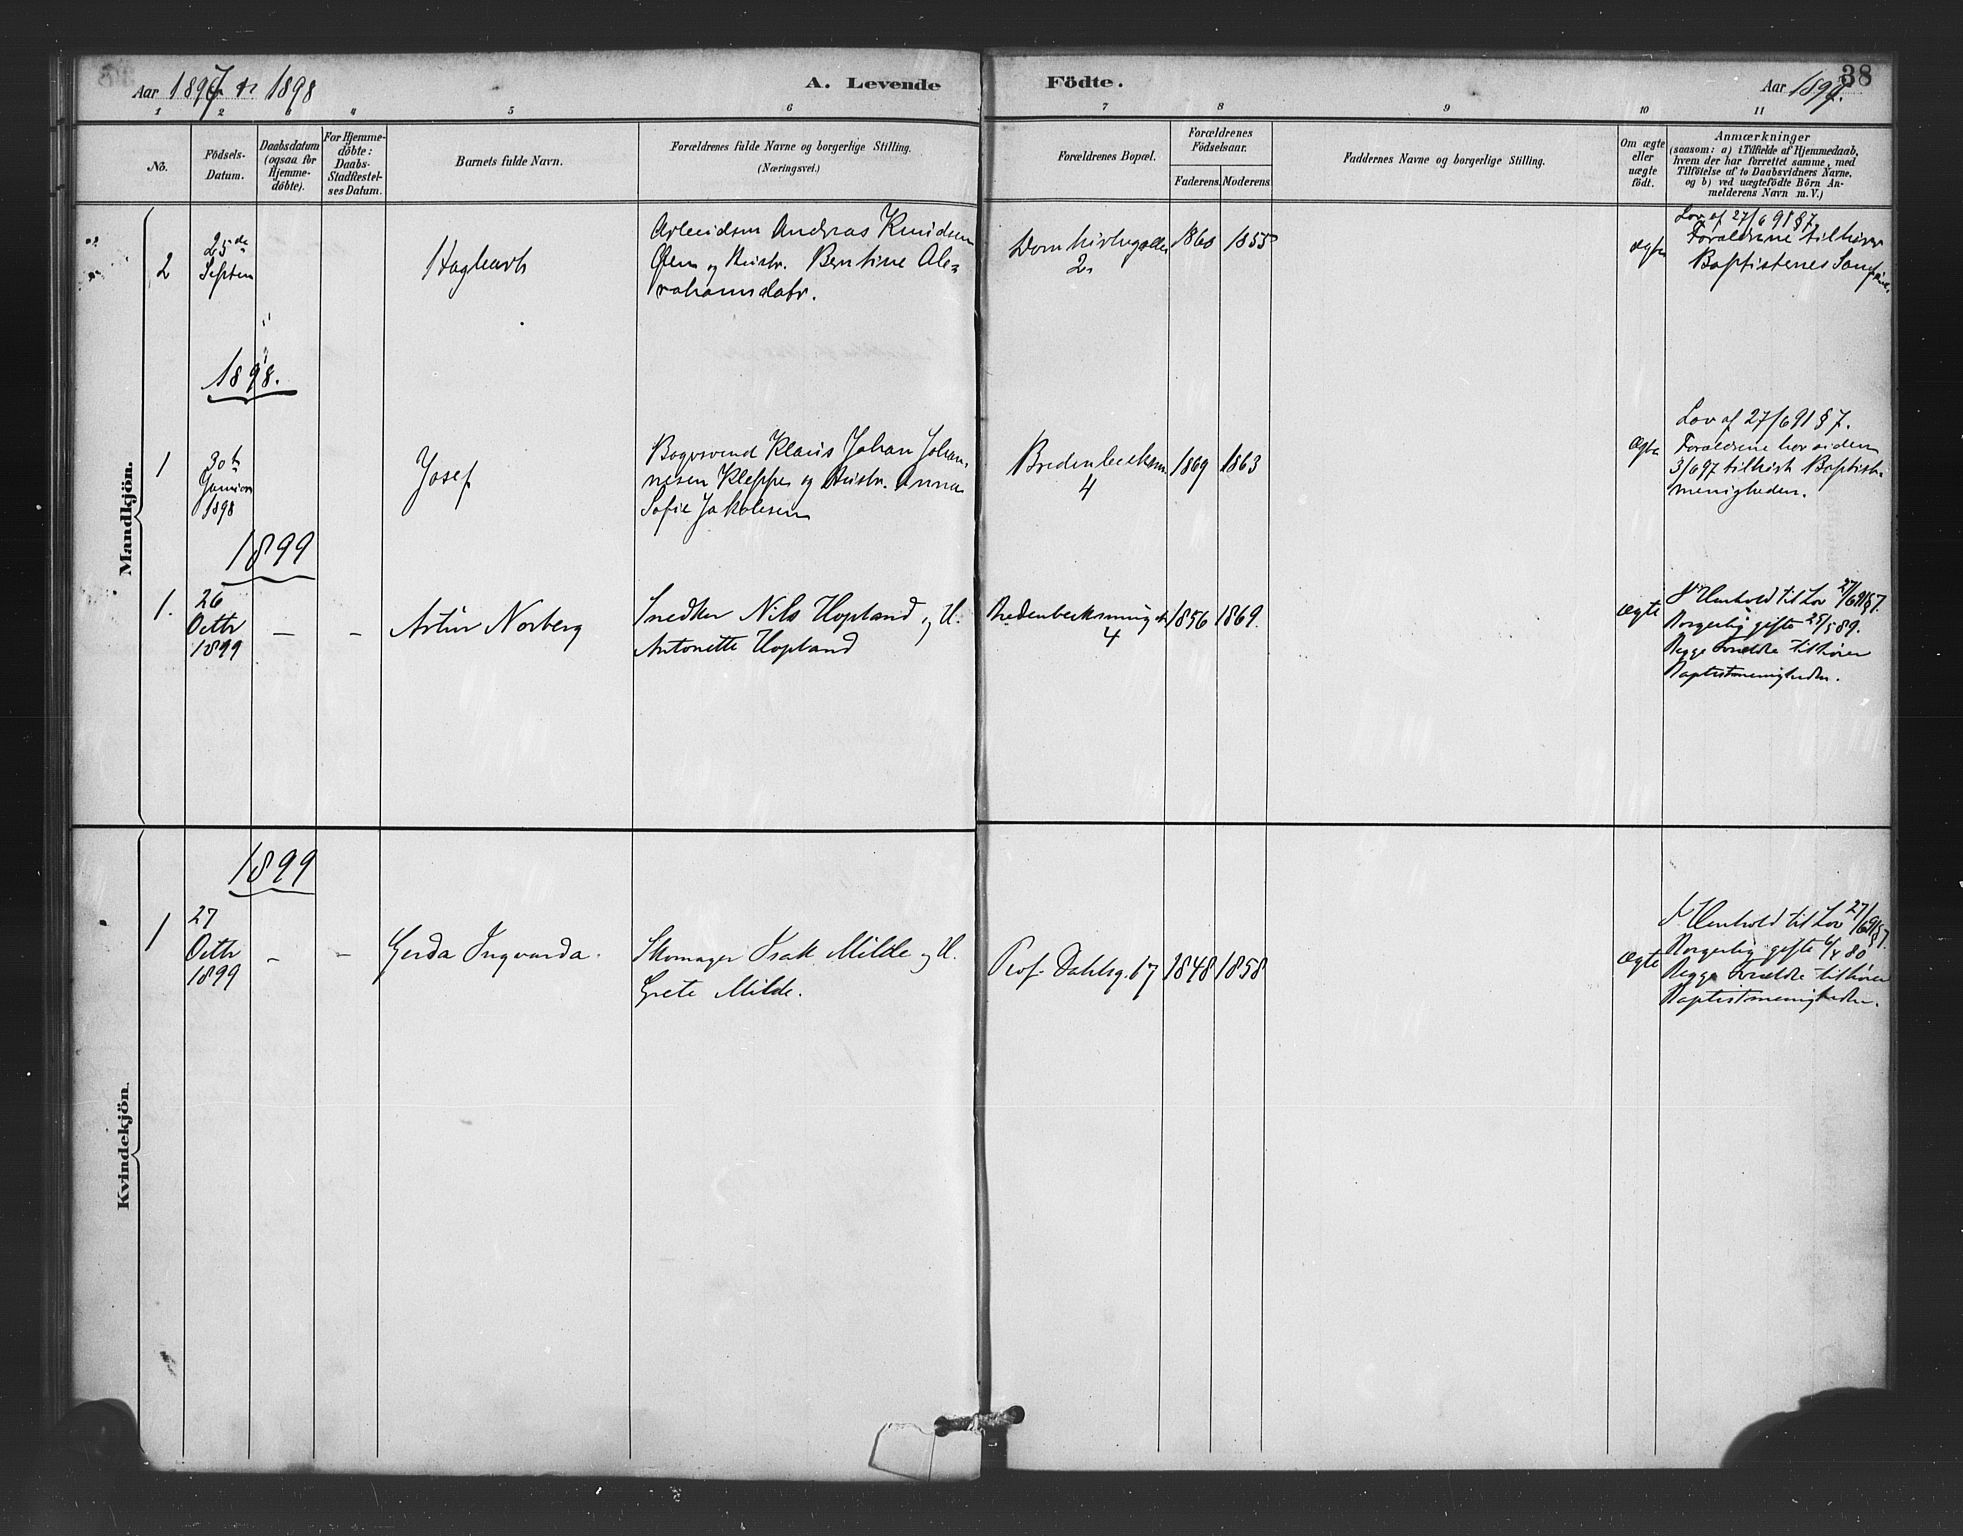 38
Aar 1897 og 1898
A. Levende Födte.
Aar 1897.
1 2 3 4 5 6 7 8 9 10 11
No.
Födsels-
Datum.
Daabsdatum
(ogsaa for
Hjemme-
döbte).
For Hjemme-
döbte:
Daabs-
Stadfæstel-
ses Datum.
Barnets fulde Navn.
Forældrenes fulde Navne og borgerlige Stilling.
(Næringsvei.)
Forældrenes Bopæl.
Forældrenes
Födselsaar.
Faderens.
Moderens.
Faddernes Navne og borgerlige Stilling.
Om ægte
eller
uægte
födt.
Anmærkninger
(saasom: a) i Tilfælde af Hjemmedaab,
hvem der har forrettet samme, med
Tilföielse af to Daabsvidners Navne,
og b) ved uægtefödte Börn An-
melderens Navn m.V.)
Mandkjön.
2
25de
Septem
Arbeidsm Andreas Knudsen
og Hustr. Bentine
Domkirkegaden
2
1860
1855
ægte
Lov af 27/6 91 § 7
Forældrene tilhører
Baptisternes
1898.
1
30te
Januar
1898
Josef
Klaus Johan Johan-
nesen Kleppe og Hustr. Anna
Sofie Jakobsen
4
1869
1863
Ægte
Lov af 27/6 91 § 7.
Forældrene har siden
3/6 97 tilhørt Baptist-
menigheden.
1899
1.
26
Octbr
1899
—
–
Artur Norberg
Snedker Nils Hopland og H.
Antonette Hopland
4
1856
1869.
Ægte
I Henhold til Lov 27/6 91 § 7.
Borgerlig gifte 25/5 89.
Begge Forældre tilhører
Baptistmenigheden.
Kvindekjön.
1899
1
27
Octbr
1899
–
–
Gerda Ingvarda.
Skomager Isak Milde og H.
Grete Milde.
Prof. Dahlsg. 67
1848
1858
Ægte
I Henhold til Lov 27/6 91 § 7.
Borgerlig gifte 6/4 80
Begge Forældre tilhører
Baptistmenigheden.